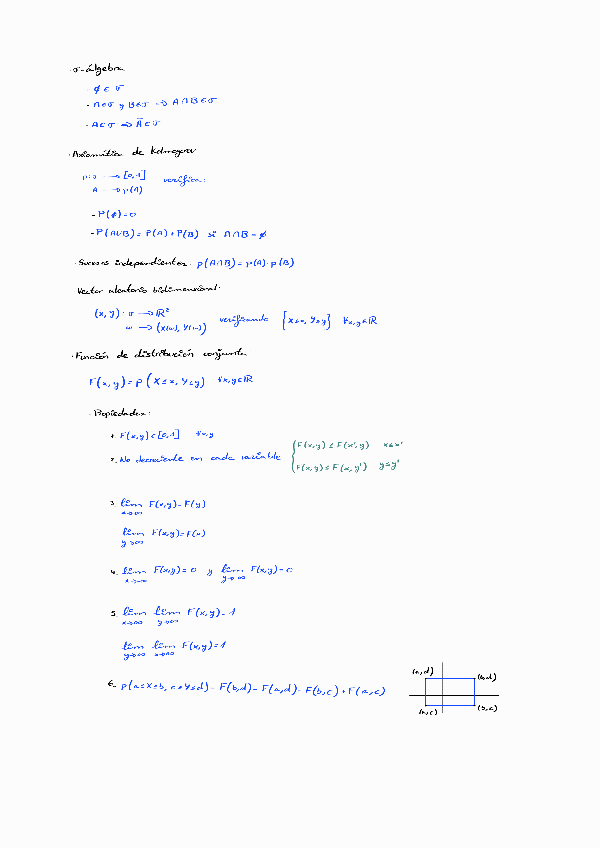 · σ-álgebra
- ∅ ∈ σ
- A∈σ y B∈σ ⟹ A∩B∈σ
- A∈σ ⟹ A̅∈σ
· Axiomática de Kolmogorov
p: σ ⟶ [0,1] verifica:
A ⟶ p(A)
- P(∅)=0
- P(A∪B) = P(A)+P(B) si A∩B=∅
· Sucesos independientes: p(A∩B)=p(A)·p(B)
Vector aleatorio bidimensional:
(x,y): σ ⟶ ℝ²
ω ⟶ (X(ω), Y(ω)) verificando {X≤x, Y≤y} ∀x,y∈ℝ
· Función de distribución conjunta
F(x,y) = p(X≤x, Y≤y) ∀x,y∈ℝ
· Propiedades:
1. F(x,y)∈[0,1] ∀x,y
2. No decreciente en cada variable { F(x,y) ≤ F(x',y) x≤x'
F(x,y) ≤ F(x,y') y≤y'
3. lím x→∞ F(x,y)=F(y)
lím y→∞ F(x,y)=F(x)
4. lím x→-∞ F(x,y)=0 y lím y→-∞ F(x,y)=0
5. lím x→∞ lím y→∞ F(x,y)=1
lím y→∞ lím x→∞ F(x,y)=1
6. p(a≤X≤b, c≤Y≤d) = F(b,d) - F(a,d) - F(b,c) + F(a,c)
(a,d) (b,d)
(a,c) (b,c)